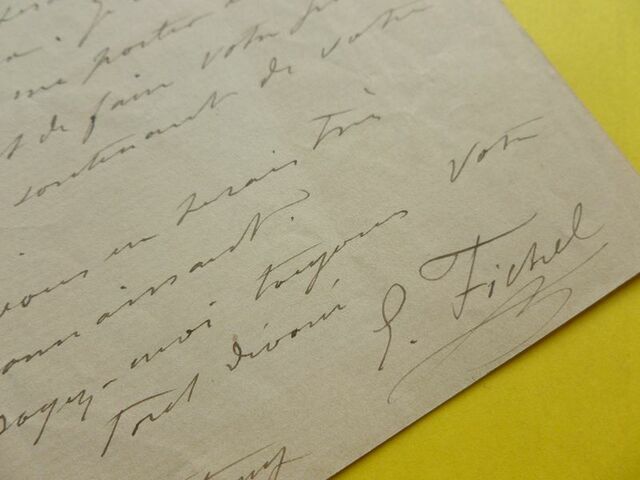 me porter
de faire votre
soutenant de votre
vous en serais très
onnaissant.
oyez-moi toujours votre
tout dévoué
E. Fichel